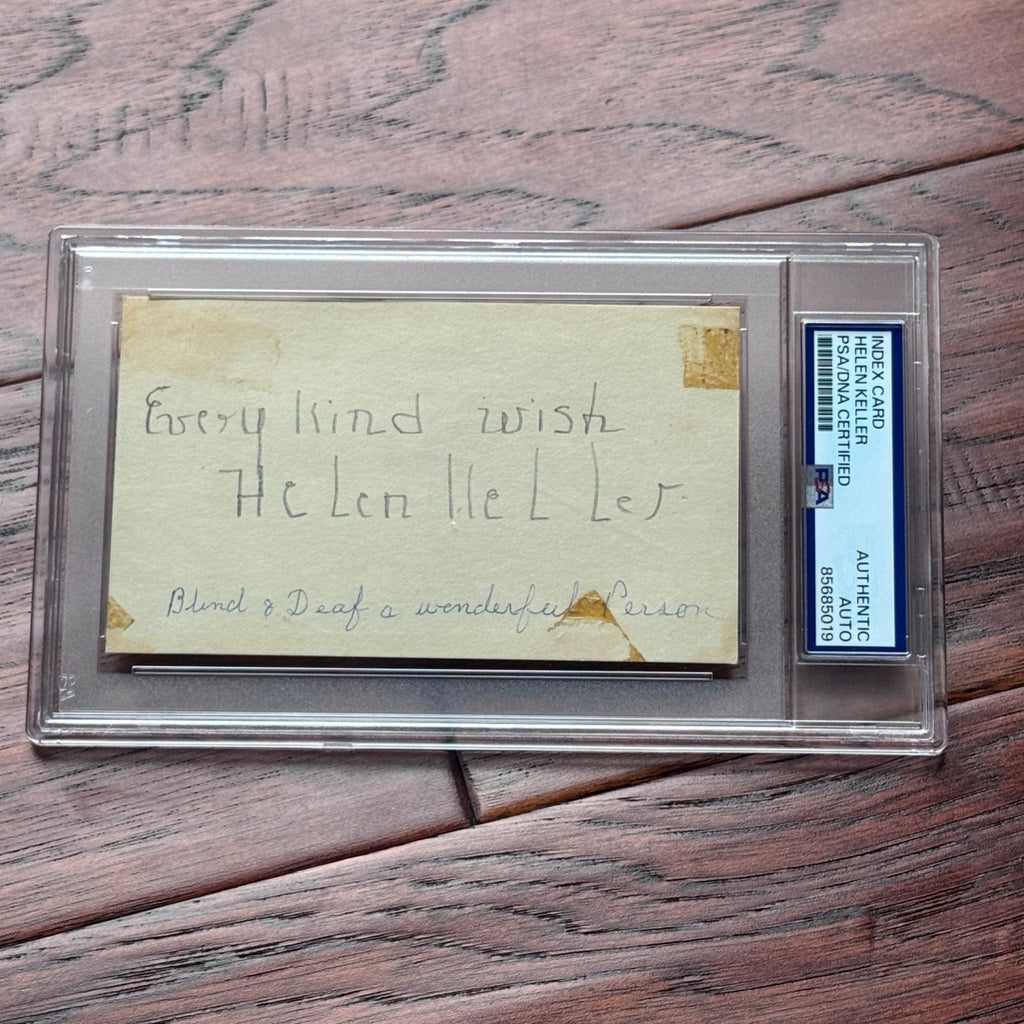 Every kind wish
Helen Keller
Blind & Deaf a wonderful Person
INDEX CARD
HELEN KELLER
PSA/DNA CERTIFIED
PSA
AUTHENTIC
AUTO
85685019